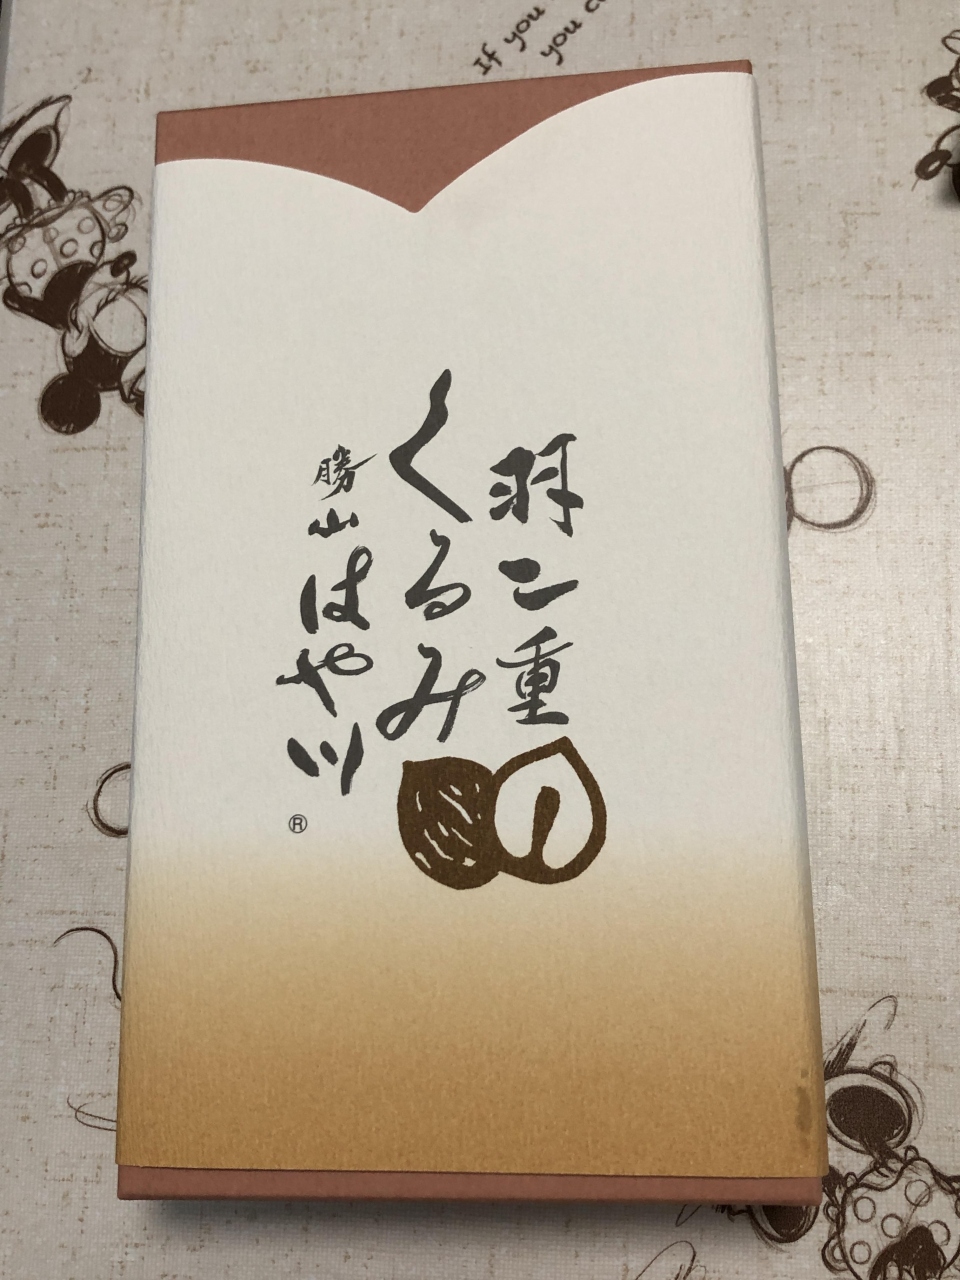 If you
you ca
羽二重
くるみ
勝山 はや川
®